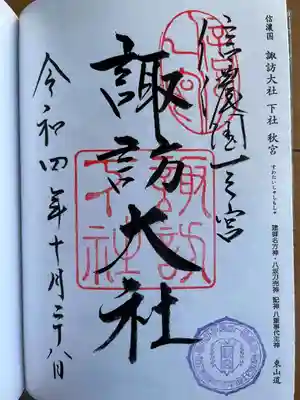 信濃国 諏訪大社 下社 秋宮
すわたいしゃしもしゃ
建御名方神・八坂刀売神 配神 八重事代主神 東山道
信濃国一之宮
諏訪大社
諏訪大社
令和四年十月二十八日